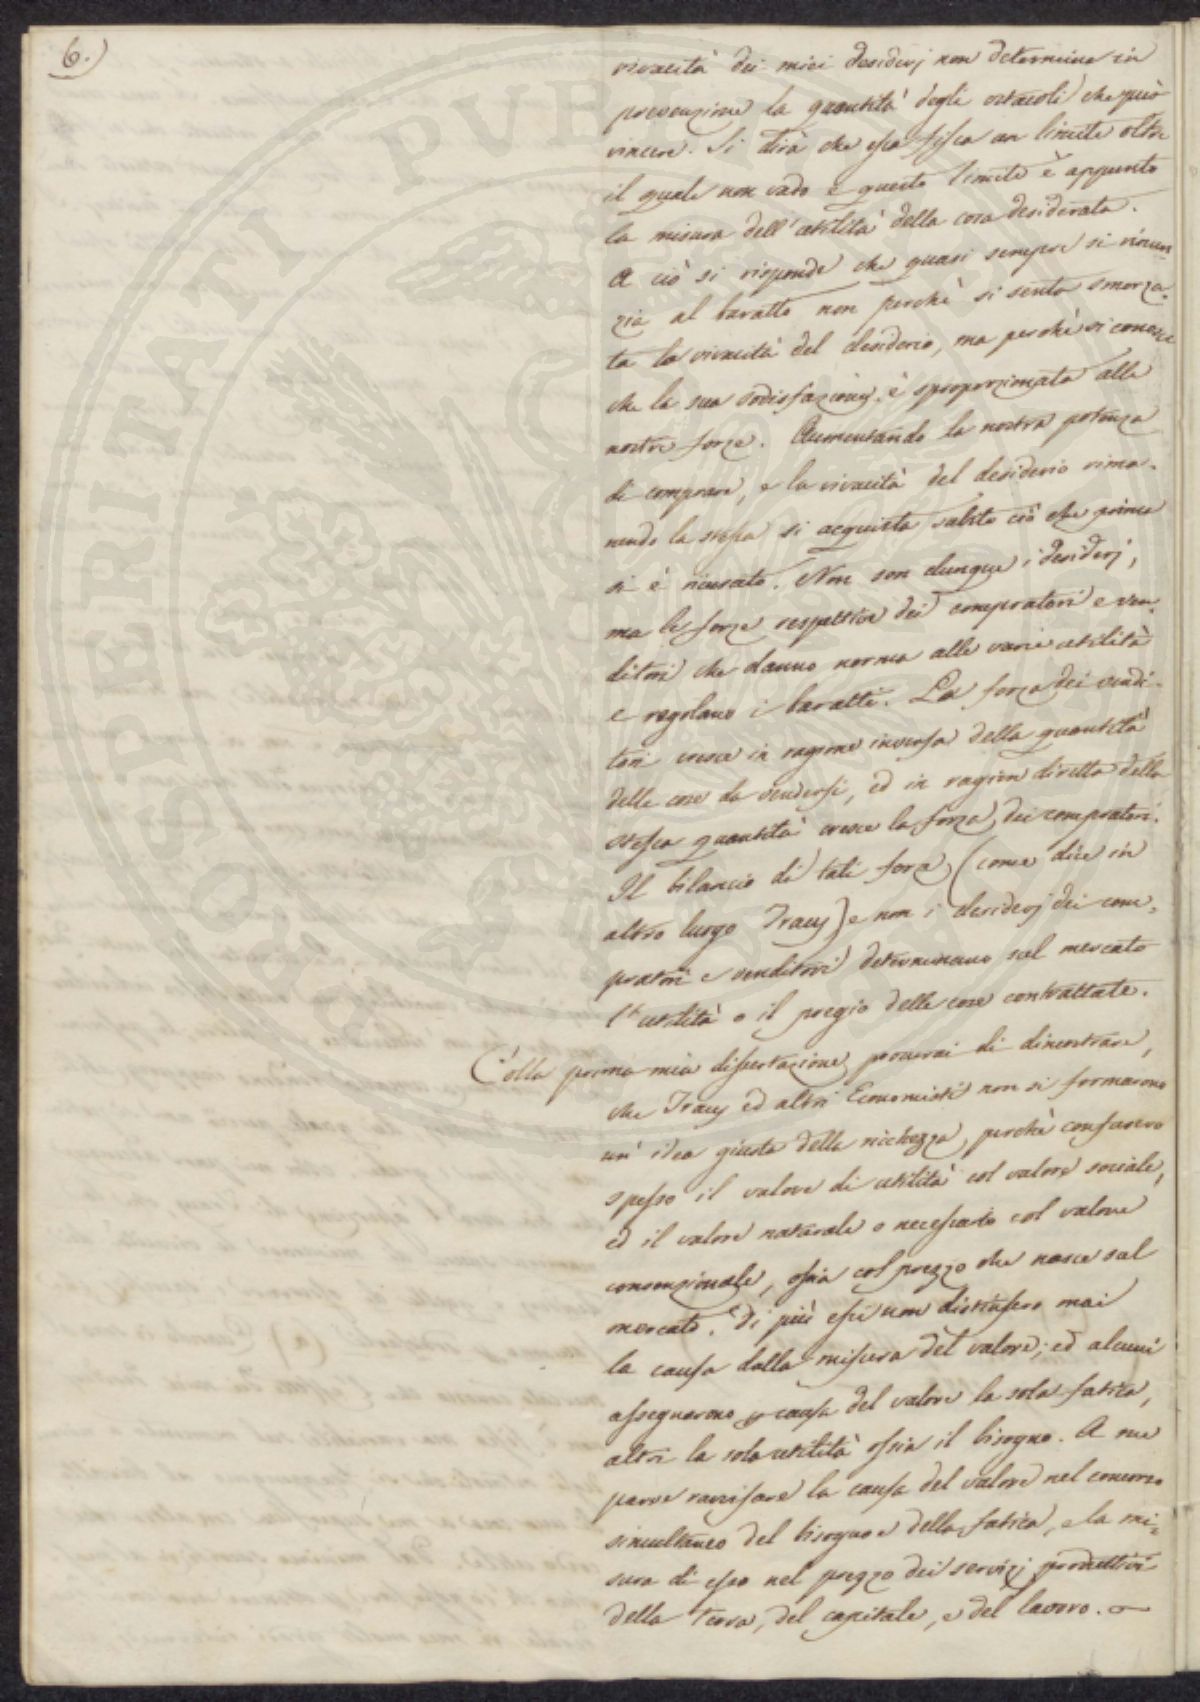 6.)
vivacità dei miei desiderj non determina in
prevenzione la quantità degli ostacoli che può
vincere. Si dirà che essa fissa un limite oltre
il quale non vado e questo limite è appunto
la misura dell'utilità della cosa desiderata.
A ciò si risponde che quasi sempre si rinun
zia al baratto non perchè si senta smorza-
ta la vivacità del desiderio, ma perchè si conosce
che la sua sodisfazione è sproporzionata alle
nostre forze. Aumentando la nostra potenza
di comprare, e la vivacità del desiderio rima-
nendo la stessa si acquista subito ciò che prima
si è ricusato. Non son dunque i desiderj,
ma le forze respettive dei compratori e ven-
ditori che danno norma alle varie utilità
e regolano i baratti. La forza dei vendi-
tori cresce in ragione inversa della quantità
delle cose da vendersi, ed in ragion diretta della
stessa quantità cresce la forza dei compratori.
Il bilancio di tali forze (come dice in
altro luogo Tracy) e non i desiderj dei com-
pratori e venditori determinano sul mercato
l'utilità o il pregio delle cose contrattate.
Colla prima mia dissertazione provai di dimostrare,
che Tracy ed altri Economisti non si formarono
un'idea giusta della ricchezza, perchè confusero
spesso il valore di utilità col valore sociale,
ed il valore naturale o necessario col valore
convenzionale, ossia col prezzo che nasce sul
mercato. Di più essi non distinsero mai
la causa dalla misura del valore; ed alcuni
assegnarono causa del valore la sola fatica,
altri la sola utilità ossia il bisogno. A me
parve ravvisare la causa del valore nel concorso
simultaneo del bisogno e della fatica, e la mi-
sura di esso nel prezzo dei servizj produttivi
della terra, del capitale, e del lavoro.
PUBLI
HOSPENITATI